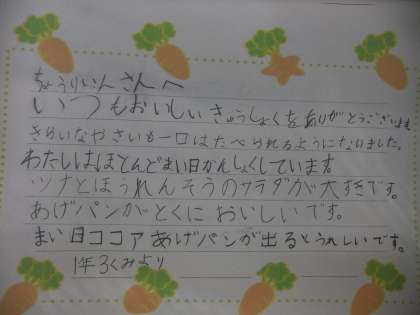 ちょうりいんさんへ
いつもおいしいきゅうしょくをありがとうございます
きらいなやさいも一口はたべられるようになりました。
わたしはほとんどまい日かんしょくしています。
ツナとほうれんそうのサラダが大すきです。
あげパンがとくにおいしいです。
まい日ココアあげパンが出るとうれしいです。
1年3くみより